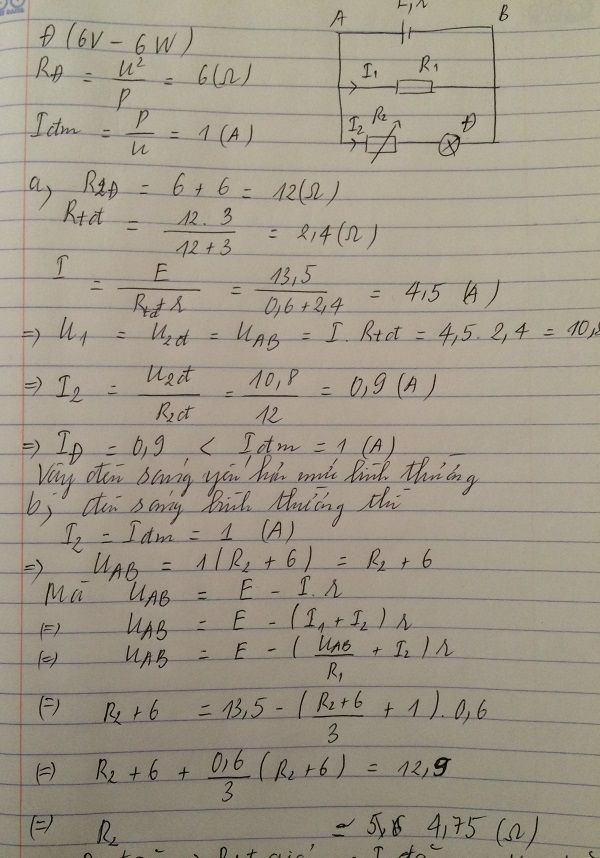 E, r
A B
I₁ R₁
I₂ R₂ Đ
Đ (6V - 6W)
RĐ = u²/p = 6(Ω)
Iđm = p/u = 1 (A)
a, R2Đ = 6 + 6 = 12(Ω)
Rtđ = 12.3/12+3 = 2,4(Ω)
I = E/Rtđ+r = 13,5/0,6+2,4 = 4,5 (A)
=> U₁ = U2đ = UAB = I. Rtđ = 4,5. 2,4 = 10,8
=> I₂ = U2đ/R2đ = 10,8/12 = 0,9 (A)
=> IĐ = 0,9 < Iđm = 1 (A)
Vậy đèn sáng yếu hơn mức bình thường
b, đèn sáng bình thường thì
I₂ = Iđm = 1 (A)
=> UAB = 1(R₂ + 6) = R₂ + 6
Mà UAB = E - I. r
(=) UAB = E - (I₁ + I₂) r
(=) UAB = E - (UAB/R₁ + I₂) r
(=) R₂ + 6 = 13,5 - (R₂+6/3 + 1). 0,6
(=) R₂ + 6 + 0,6/3 (R₂ + 6) = 12,9
(=) R₂ = 4,75 (Ω)